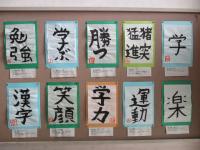 勉強
学ぶ
勝つ
猪突
猛進
学
漢字
笑顔
学力
運動
楽